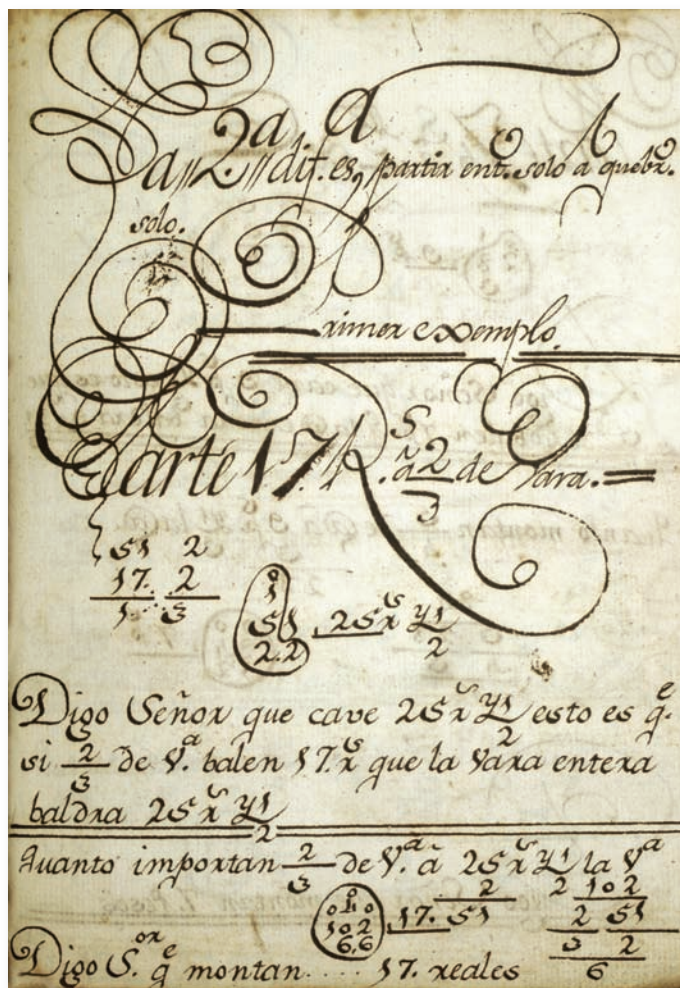 La 2.ª dif.es, partir ent.o solo a quebr.o
solo.
Primer exemplo.
Parte 17. r.s â 2/3 de Vara.
51 2
17. 2
1. 3
0
1
51 25 r.s y 1/2
2.2
Digo Señor que cave 25 r.s y 1/2 esto es q.e
si 2/3 de V.a balen 17. r.s que la Vara entera
baldra 25 r.s y 1/2
Quanto importan 2/3 de V.a â 25 r.s y 1/2 la V.a
2 2 102
0
010 17. 51 2 51
102 3 2
6.6 6
Digo S.or q.e montan .... 17. reales